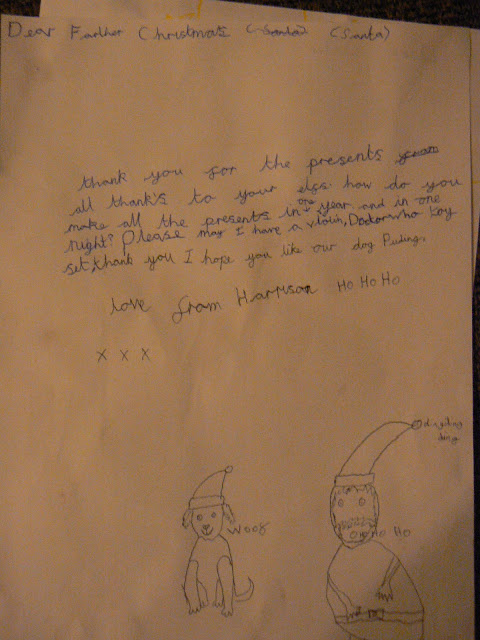 Dear Farther Christmas (Santa) (Santa)
thank you for the presents
all thank's to your elgs. how do you
make all the presents in one year and in one
right? Please may I have a violin, Doctor who toy
set, thank you I hope you like our dog Puding.
love from Harrison HO HO HO
x x x
dingding
dong
Woof
HO HO HO